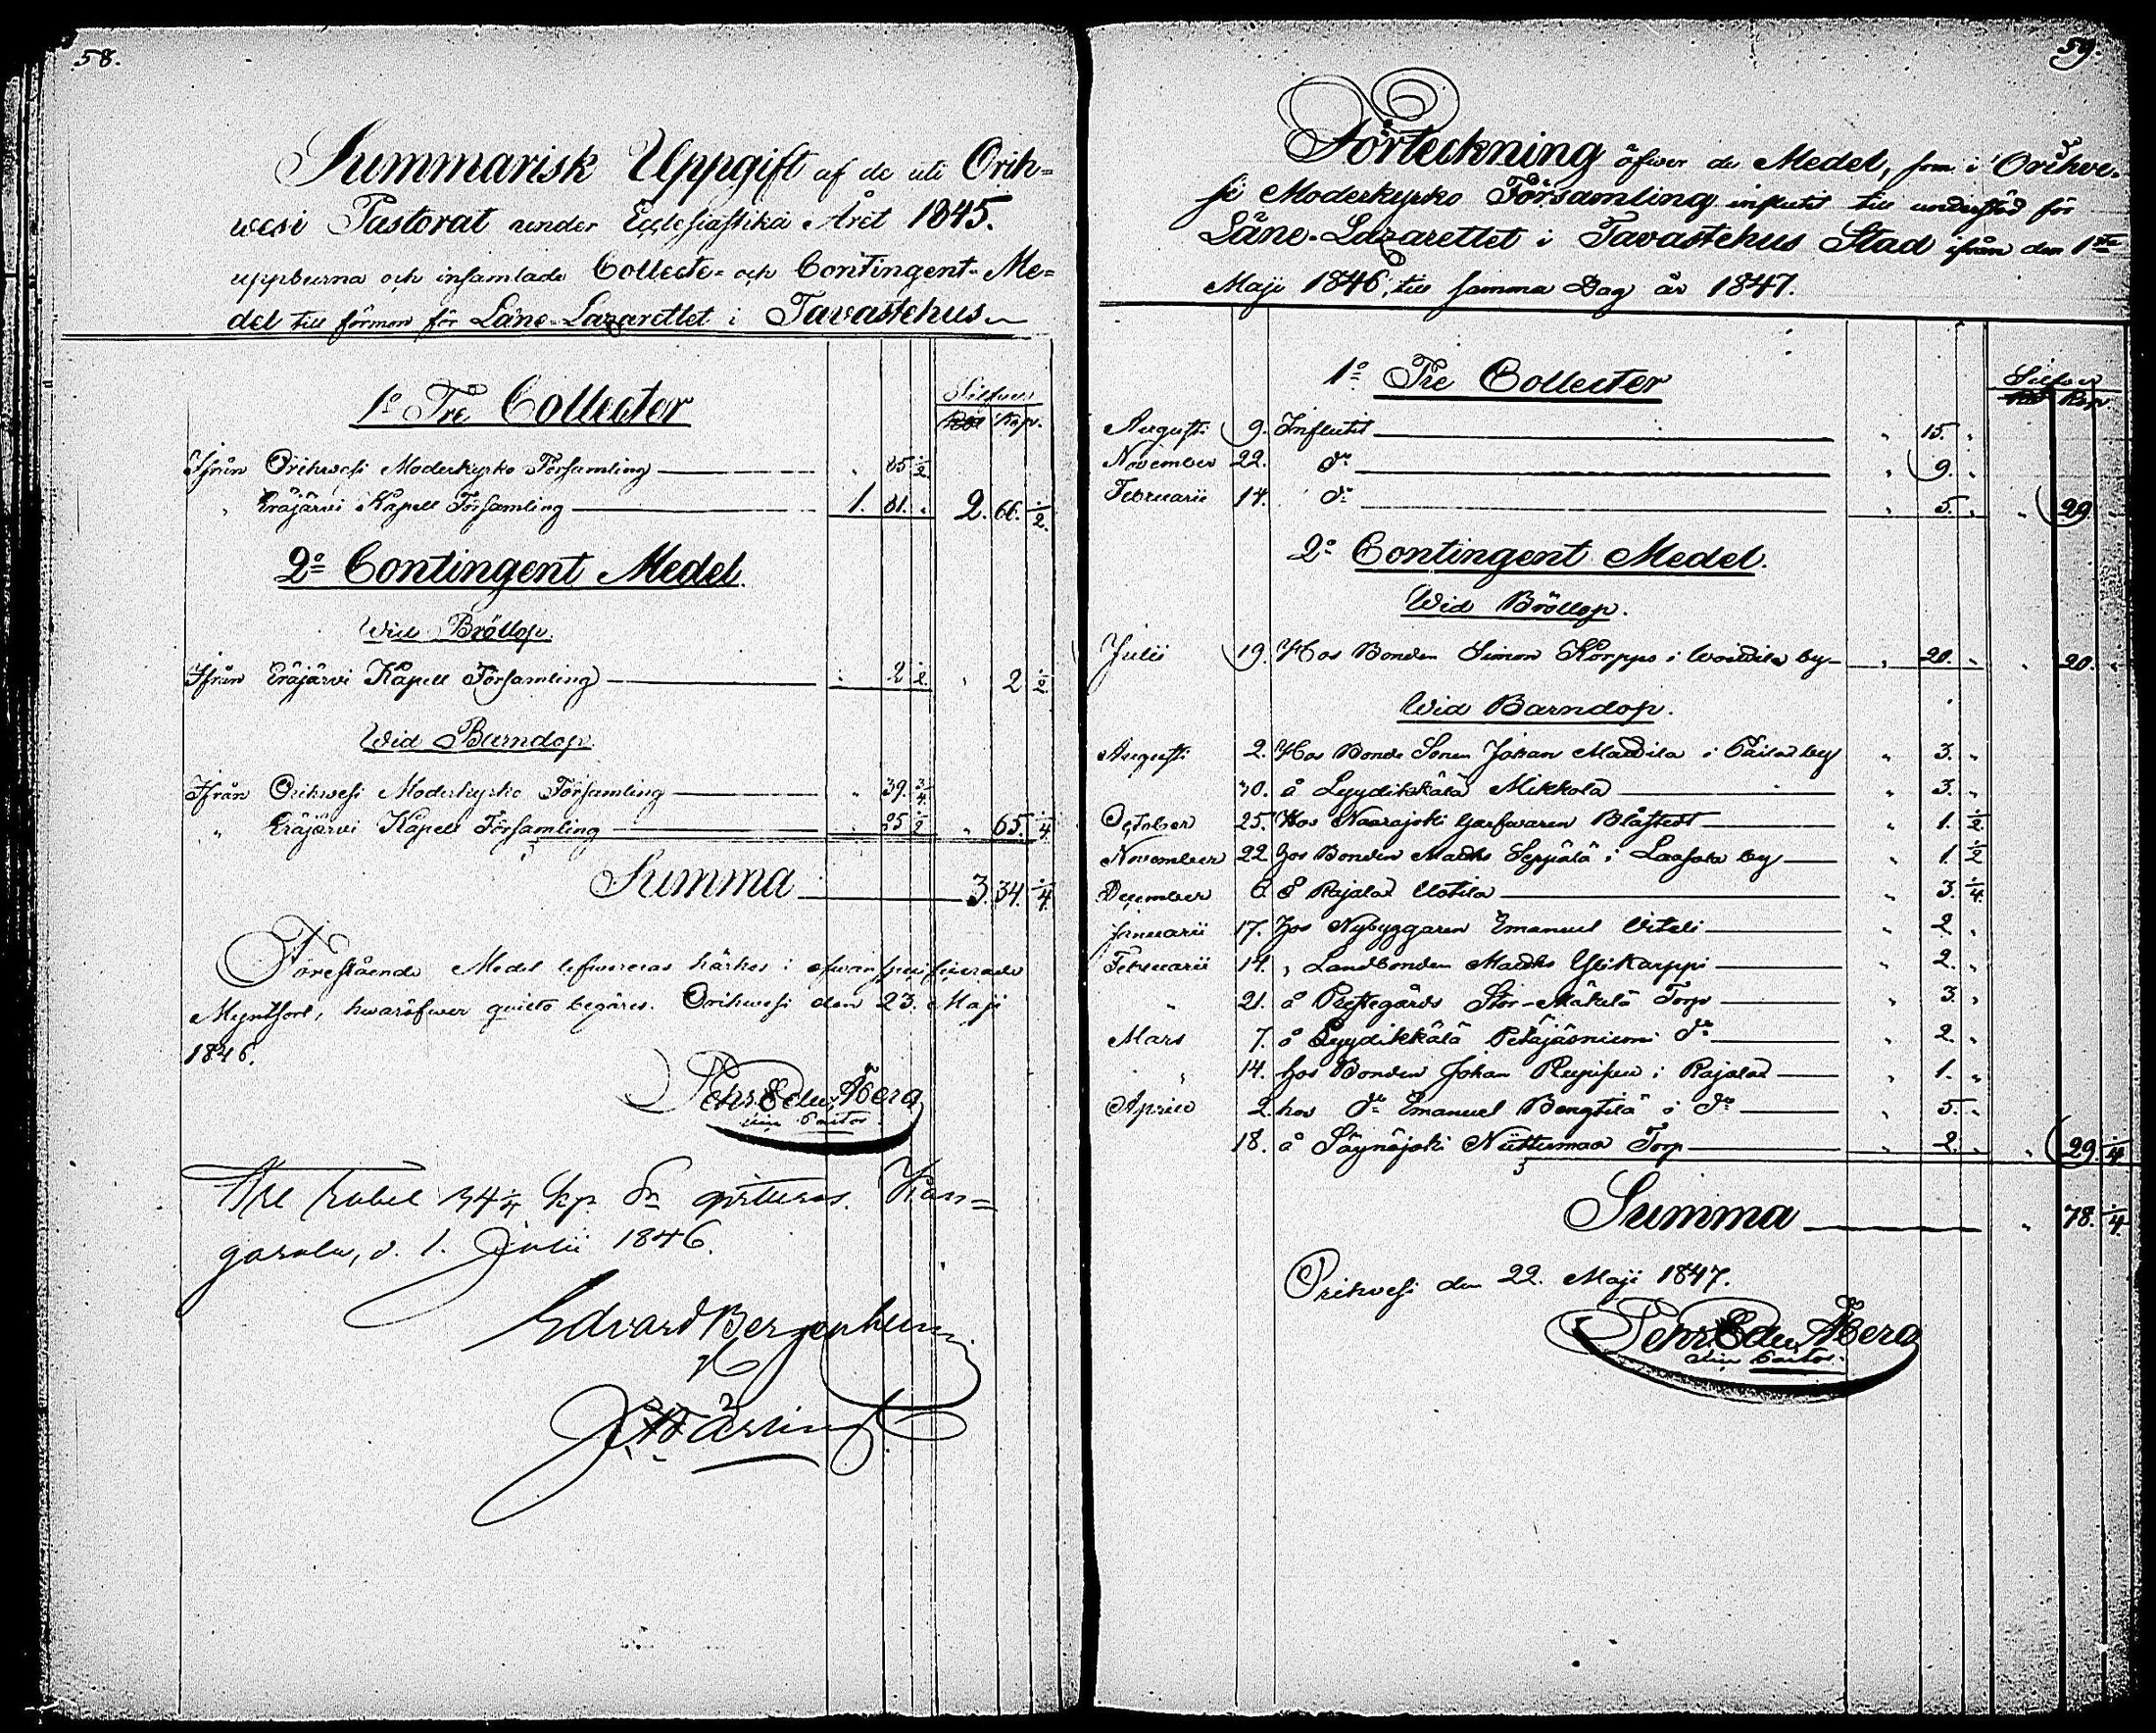 58.
Summarisk Uppgift af de uti Orih=
wesi Pastorat under Ecclesiastika Året 1845.
uppburna och insamlade Collecte- och Contingent-Me=
del till förmon för Läne-Lazarettet i Tavastehus
Silfver
1o Tre Collecter
Rub Kop.
Ifrån Orihwesi Moderkyrko Församling " 85 1/2
" Eräjärvi Kapell Församling 1. 81. " 2. 66. 1/2.
2o Contingent Medel.
Wid Bröllop.
Ifrån Eräjärvi Kapell Församling " 2 1/2 " 2 1/2.
Wid Barndop.
Ifrån Orihwesi Moderkyrko Församling " 39. 3/4.
" Eräjärvi Kapell Församling " 25 1/2 " 65. 1/4.
Summa 3. 34. 1/4.
Förestående Medel lefwereras härhos i ofwanspecificerade
Myntsort, hwaröfwer quitto begäres. Orihwesi den 23. Maji
1846.
Pehr Edv. Åberg
Vice Pastor.
Tre rubel 34 1/4 kop. Sr qvitteras. Kan=
gasala, d. 1. Julii 1846.
Edvard Bergenheim
59.
Förteckning öfwer de Medel, som i Orihve=
si Moderkyrko Församling influtit till understöd för
Läne-Lazarettet i Tavastehus Stad ifrån den 1sta
Maji 1846, till samma Dag år 1847.
1o Tre Collecter
Silfver
Rub Kop.
Augusti 9. Influtit " 15. "
November 22. do " 9. "
Februarii 14. do " 5. " " 29. "
2o Contingent Medel.
Wid Bröllop.
Julii 19. Hos Bonden Simon Korppo i Woitila by " 20. " " 20. "
Wid Barndop.
Augusti 2. Hos Bonde Sonen Johan Mattila i Päilä by " 3. "
30. å Lyydikkälä Mikkola " 3. "
October 25. Hos Naarajoki Garfwaren Blåfield " 1. 1/2.
November 22 hos Bonden Matts Seppälä i Laasola by " 1 1/2
December 6. å Rajalax Uotila " 3. 1/4.
Januarii 17. hos Nybyggaren Emanuel Uiteli " 2. "
Februarii 14. " Landbonden Matts Ylikarppi " 2. "
" 21. å Prestegårds Stor-Mäkelä Torp " 3. "
Mars 7. å Lyydikkälä Petäjäsniemi do " 2. "
" 14. hos Bonden Johan Reipisen i Rajalax " 1. "
Aprill 2. hos do Emanuel Bengtilä i do " 5. "
18. å Säynäjoki Niittumaa Torp " 2. " " 29. 1/4.
Summa " 78. 1/4.
Orihvesi den 22. Maji 1847.
Pehr Edv. Åberg
Vice Pastor.